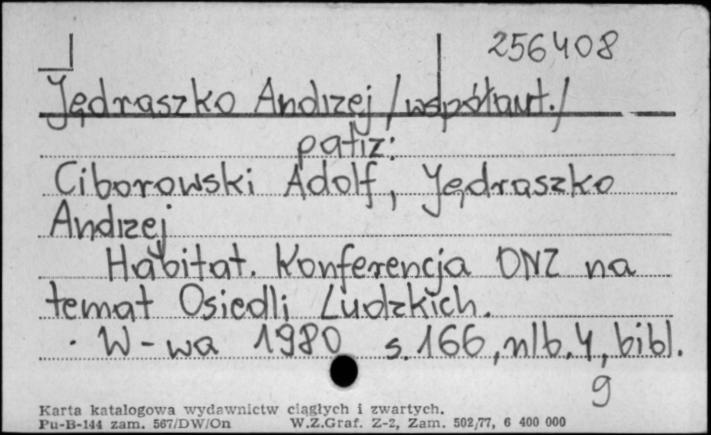 256408
Jędraszko Andrzej /współaut./
patrz:
Ciborowski Adolf, Jędraszko
Andrzej
Habitat. Konferencja ONZ na
temat Osiedli Ludzkich.
W-wa 1980 s. 166, nlb. 4, bibl.
9
Karta katalogowa wydawnictw ciągłych i zwartych.
Pu-B-144 zam. 567/DW/On W.Z.Graf. Z-2, Zam. 502/77, 6 400 000